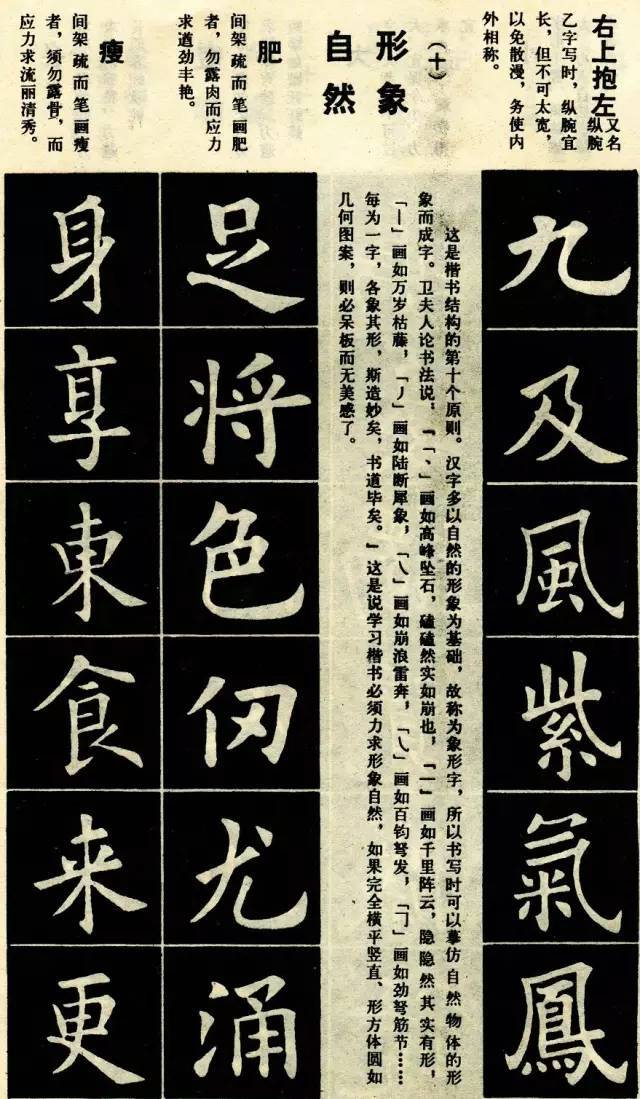 右上抱左
又名
纵腕
乙字写时，纵腕宜
长，但不可太宽，
以免散漫，务使内
外相称。
九
及
風
紫
氣
鳳
（十）
形象
自然
这是楷书结构的第十个原则。汉字多以自然的形象为基础，故称为象形字，所以书写时可以摹仿自然物体的形
象而成字。卫夫人论书法说，『「、」画如高峰坠石，磕磕然实如崩也，「一」画如千里阵云，隐隐然其实有形，
「丨」画如万岁枯藤，「丿」画如陆断犀象，「乀」画如崩浪雷奔，「㇂」画如百钧弩发，「㇆」画如劲弩筋节……
每为一字，各象其形，斯造妙矣，书道毕矣。』这是说学习楷书必须力求形象自然，如果完全横平竖直、形方体圆如
几何图案，则必呆板而无美感了。
肥
间架疏而笔画肥
者，勿露肉而应力
求遒劲丰艳。
足
将
色
仞
尤
涌
瘦
间架疏而笔画瘦
者，须勿露骨，而
应力求流丽清秀。
身
享
東
食
来
更